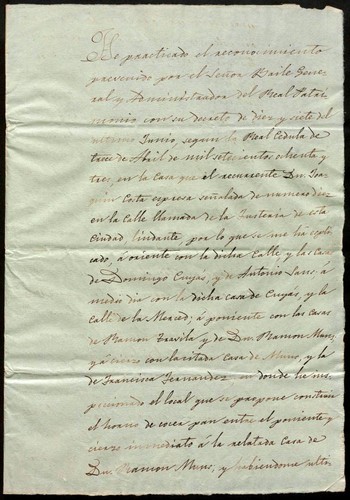 He practicado el reconocimiento
prevenido por el Señor Baile Gene-
ral y Administrador del Real Patri-
monio con su decreto de diez y siete del
ultimo Junio, segun la Real Cedula de
trece de Abril de mil setecientos ochenta y
tres, en la Casa que el recurrente Dn. Joa-
quin Costa espresa señalada de numero diez
en la Calle llamada de la Fusteria de esta
Ciudad, lindante, por lo que se me ha espli-
cado, á oriente con la dicha Calle y las casas
de Domingo Cuyás, y de Antonio Sans; á
medio dia con la dicha casa de Cuyás, y la
Calle de la Merced; á poniente con las casas
de Ramon y de Dn. Ramon Mun;
y á cierzo con la citada Casa de y la
de Francisca Fernandez en donde he ins-
peccionado el local que se propone construir
el horno de cocer pan entre el poniente y
cierzo immediato á la relatada Casa de
Dn. Ramon y habiendome